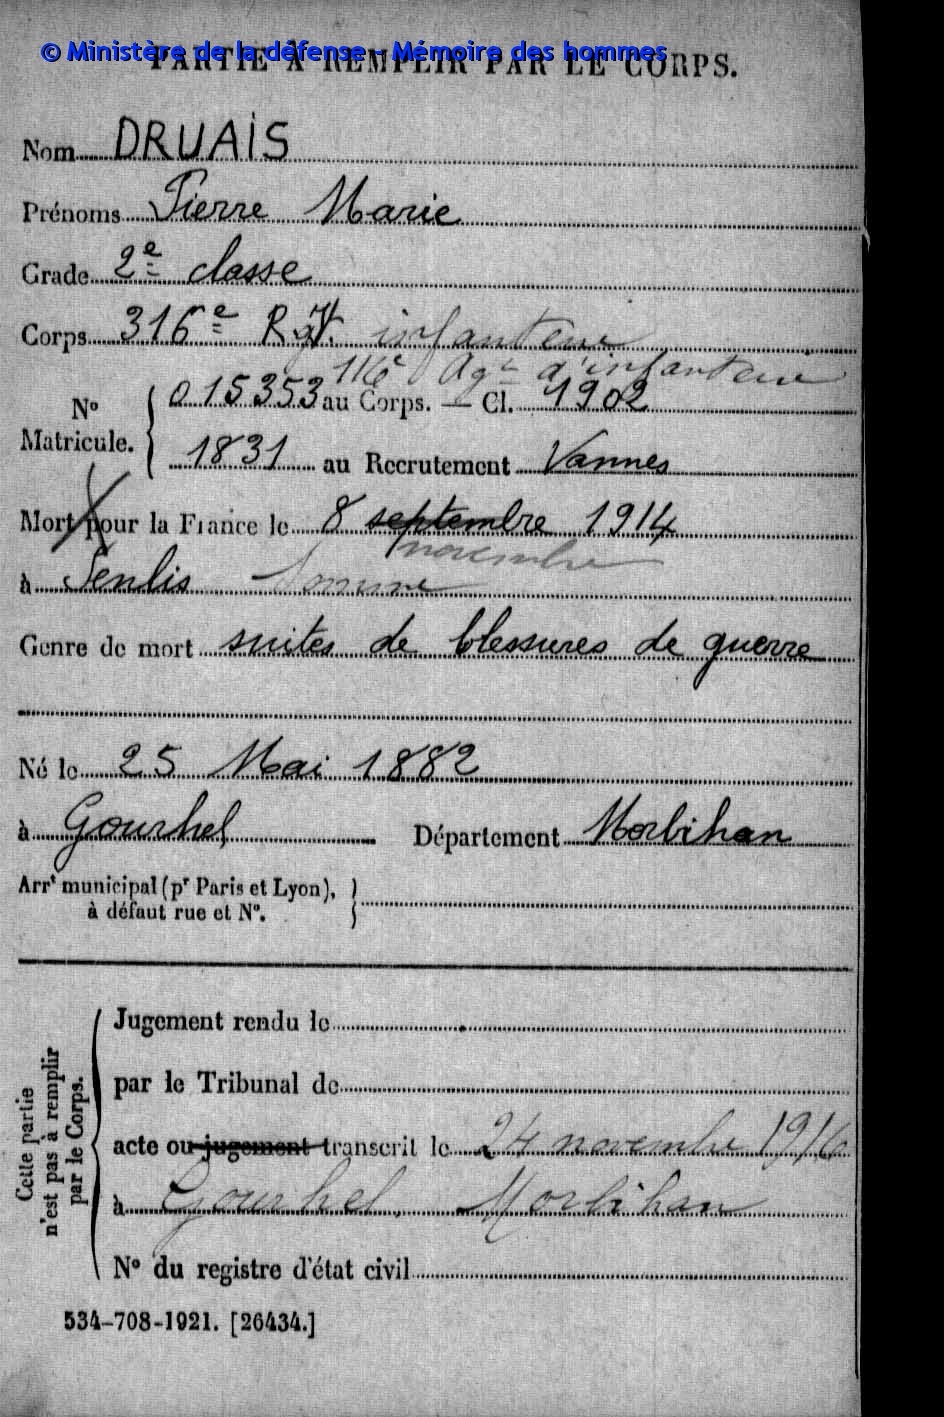 © Ministère de la défense - Mémoire des hommes
PARTIE À REMPLIR PAR LE CORPS.
Nom DRUAIS
Prénoms Pierre Marie
Grade 2e classe
Corps 316e Rgt. infanterie
116e Rgt d'infanterie
No Matricule. 015353 au Corps. — Cl. 1902
1831 au Recrutement Vannes
Mort pour la France le 8 septembre 1914
novembre
à Senlis Somme
Genre de mort suites de blessures de guerre
Né le 25 Mai 1882
à Gourhel Département Morbihan
Arrt municipal (pr Paris et Lyon),
à défaut rue et No.
Cette partie n'est pas à remplir par le Corps.
Jugement rendu le
par le Tribunal de
acte ou jugement transcrit le 24 novembre 1916
à Gourhel. Morbihan
No du registre d'état civil
534-708-1921. [26434.]